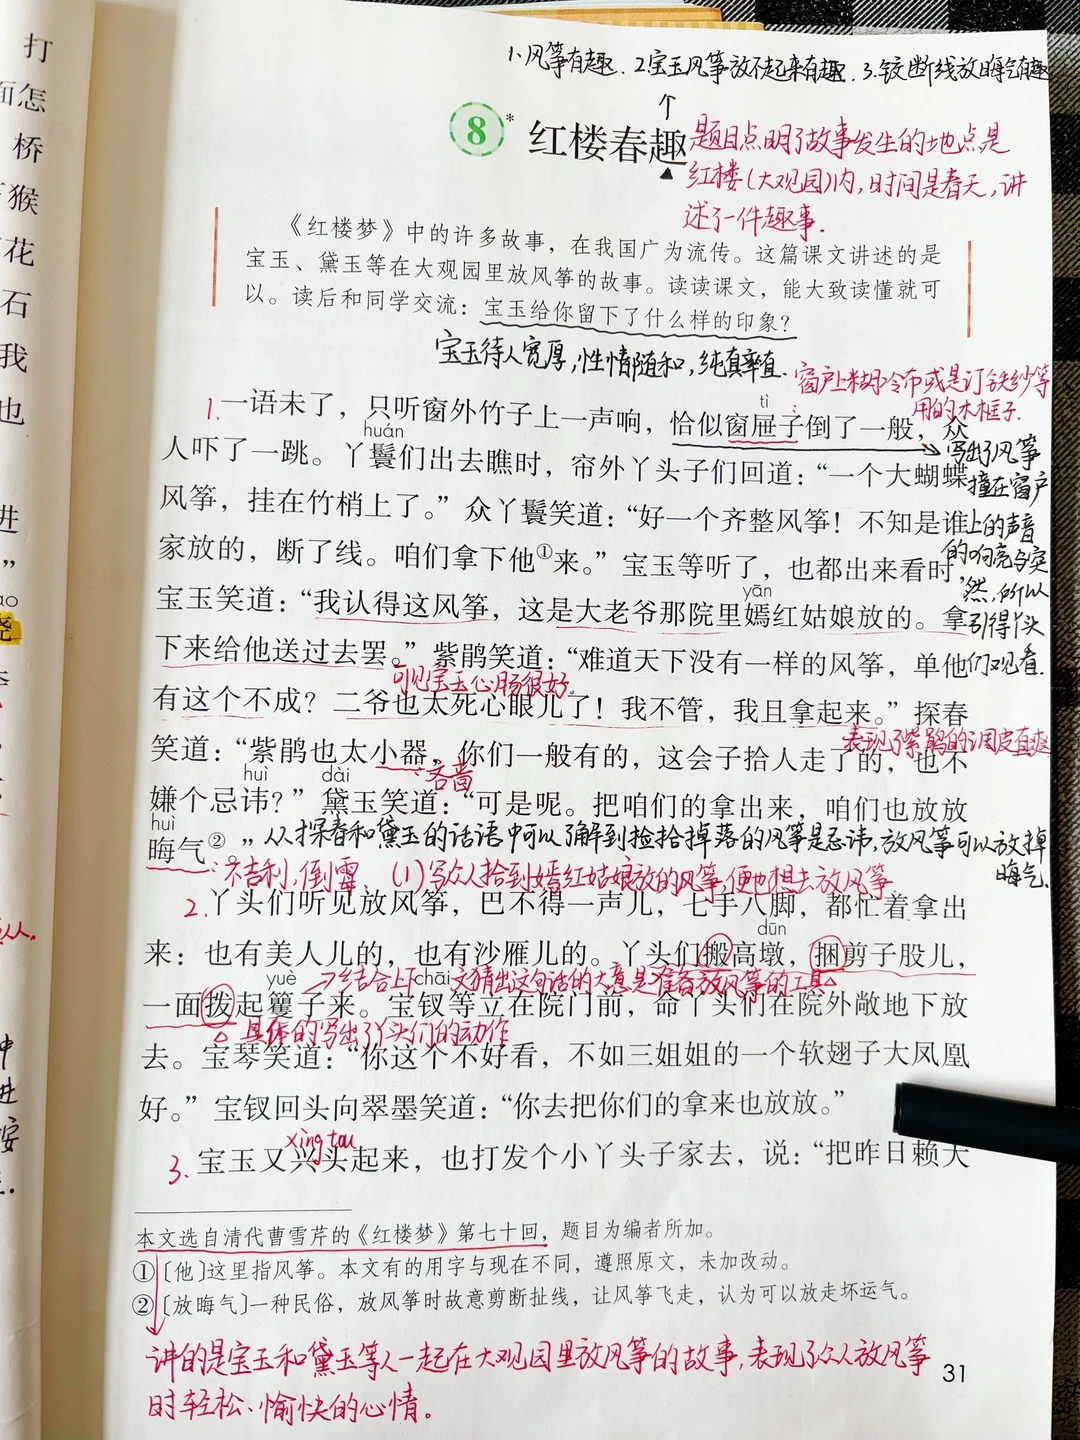 1、风筝有趣.2宝玉风筝放不起来有趣.3.铰断线放晦气有趣
8*
红楼春趣
题目点明了故事发生的地点是
红楼(大观园)内,时间是春天,讲
述了一件趣事.
《红楼梦》中的许多故事，在我国广为流传。这篇课文讲述的是
宝玉、黛玉等在大观园里放风筝的故事。读读课文，能大致读懂就可
以。读后和同学交流：宝玉给你留下了什么样的印象？
宝玉待人宽厚,性情随和,纯真率直.
窗户上糊冷布或是订铁纱等
用的木框子.
tì
1.一语未了，只听窗外竹子上一声响，恰似窗屉子倒了一般，众
huán
人吓了一跳。丫鬟们出去瞧时，帘外丫头子们回道：“一个大蝴蝶
风筝，挂在竹梢上了。”众丫鬟笑道：“好一个齐整风筝！不知是谁
家放的，断了线。咱们拿下他①来。”宝玉等听了，也都出来看时，
yān
宝玉笑道：“我认得这风筝，这是大老爷那院里嫣红姑娘放的。拿
下来给他送过去罢。”紫鹃笑道：“难道天下没有一样的风筝，单他
写出了风筝
撞在窗户
上的声音
的响亮与突
然,所以
引得丫头
们观看.
可见宝玉心肠很好.
有这个不成？二爷也太死心眼儿了！我不管，我且拿起来。”探春
表现了紫鹃的调皮直爽
笑道：“紫鹃也太小器，你们一般有的，这会子拾人走了的，也不
吝啬
huì dài
嫌个忌讳？”黛玉笑道：“可是呢。把咱们的拿出来，咱们也放放
huì
晦气②。”
从探春和黛玉的话语中可以了解到捡拾掉落的风筝是忌讳,放风筝可以放掉
晦气.
不吉利,倒霉.
(1)写众人拾到嫣红姑娘放的风筝,便也想去放风筝
2.丫头们听见放风筝，巴不得一声儿，七手八脚，都忙着拿出
dūn
来：也有美人儿的，也有沙雁儿的。丫头们搬高墩，捆剪子股儿，
yuè chāi
结合上下文猜出这句话的大意是准备放风筝的工具
一面拨起籰子来。宝钗等立在院门前，命丫头们在院外敞地下放
具体的写出了丫头们的动作
去。宝琴笑道：“你这个不好看，不如三姐姐的一个软翅子大凤凰
好。”宝钗回头向翠墨笑道：“你去把你们的拿来也放放。”
xìng tou
3.宝玉又兴头起来，也打发个小丫头子家去，说：“把昨日赖大
本文选自清代曹雪芹的《红楼梦》第七十回，题目为编者所加。
①〔他〕这里指风筝。本文有的用字与现在不同，遵照原文，未加改动。
②〔放晦气〕一种民俗，放风筝时故意剪断扯线，让风筝飞走，认为可以放走坏运气。
讲的是宝玉和黛玉等人一起在大观园里放风筝的故事,表现了众人放风筝
时轻松、愉快的心情。
31
打
面怎
桥
猴
花
石
我
也
进
”